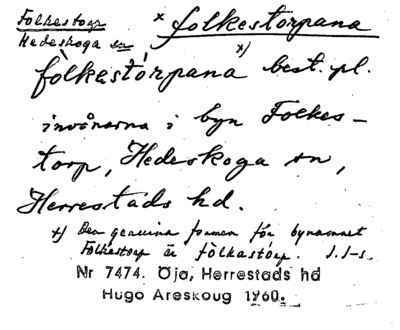 Folkestorp × folkestorpana
Hedeskoga sn
fòlkastórpana ×) best. pl.
invånarna i byn Folkes-
torp, Hedeskoga sn,
Herrestads hd.
×) Den genuina formen för bynamnet
Folkestorp är fòlkastórp. I.I-s.
Nr 7474. Öja, Herrestads hd
Hugo Areskoug 1960.